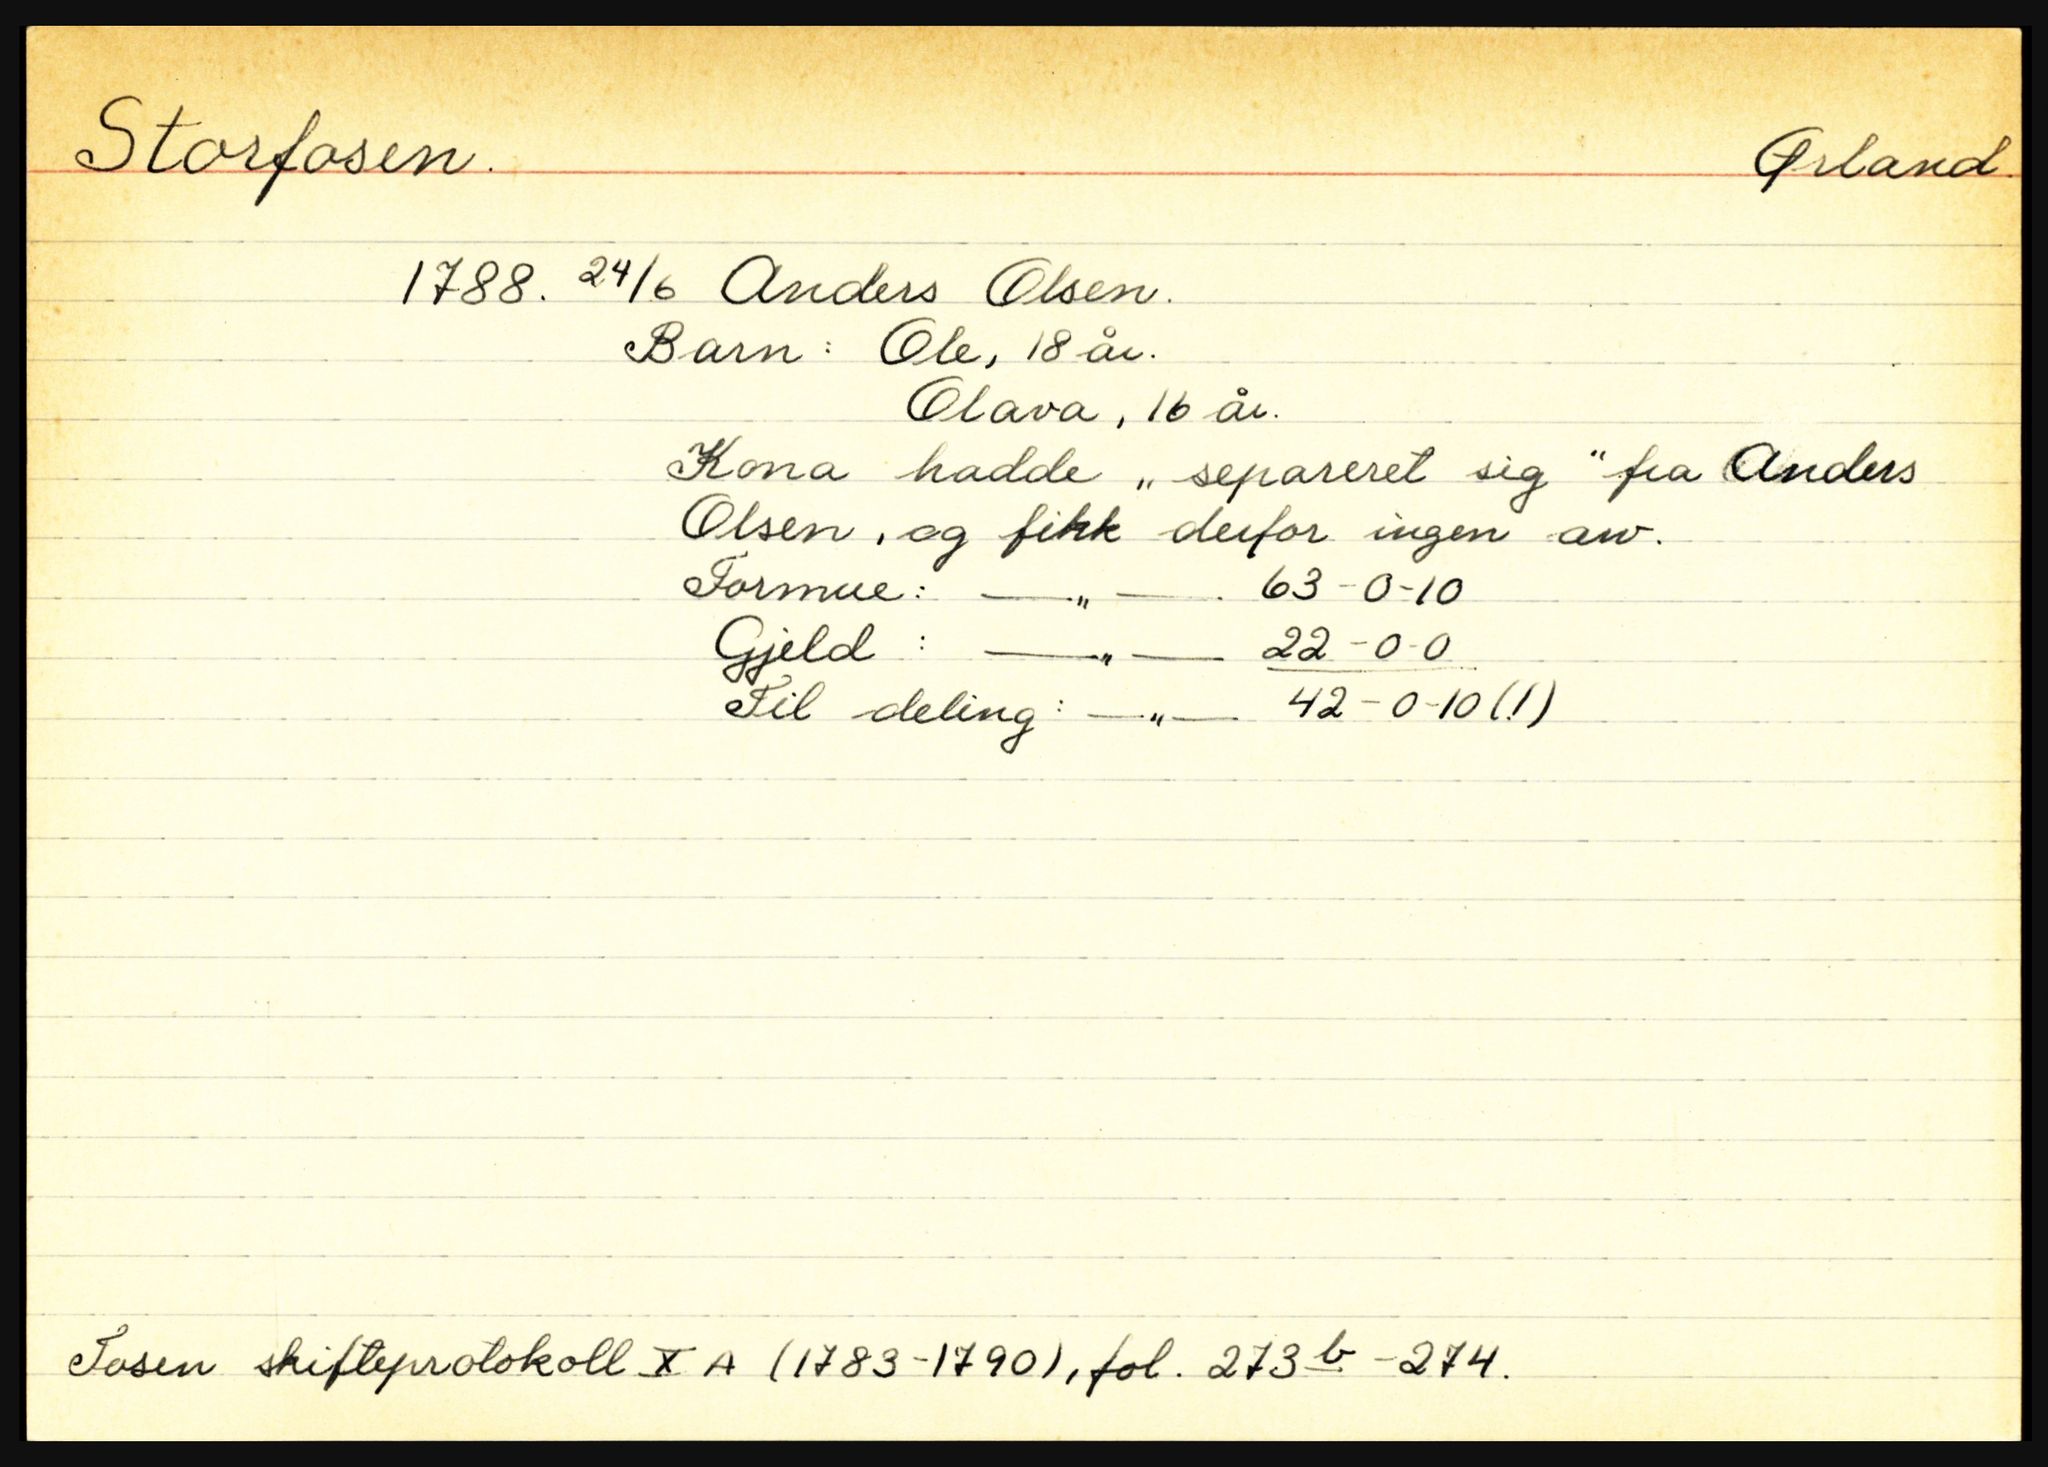 Storfosen. Ørland.
1788. 24/6 Anders Olsen.
Barn: Ole, 18 år.
Olava, 16 år.
Kona hadde „separeret sig“ fra Anders
Olsen, og fikk derfor ingen arv.
Formue: —„— 63-0-10
Gjeld: —„— 22-0-0
Til deling: —„— 42-0-10(!)
Fosen skifteprotokoll X A (1783-1790), fol. 273b-274.